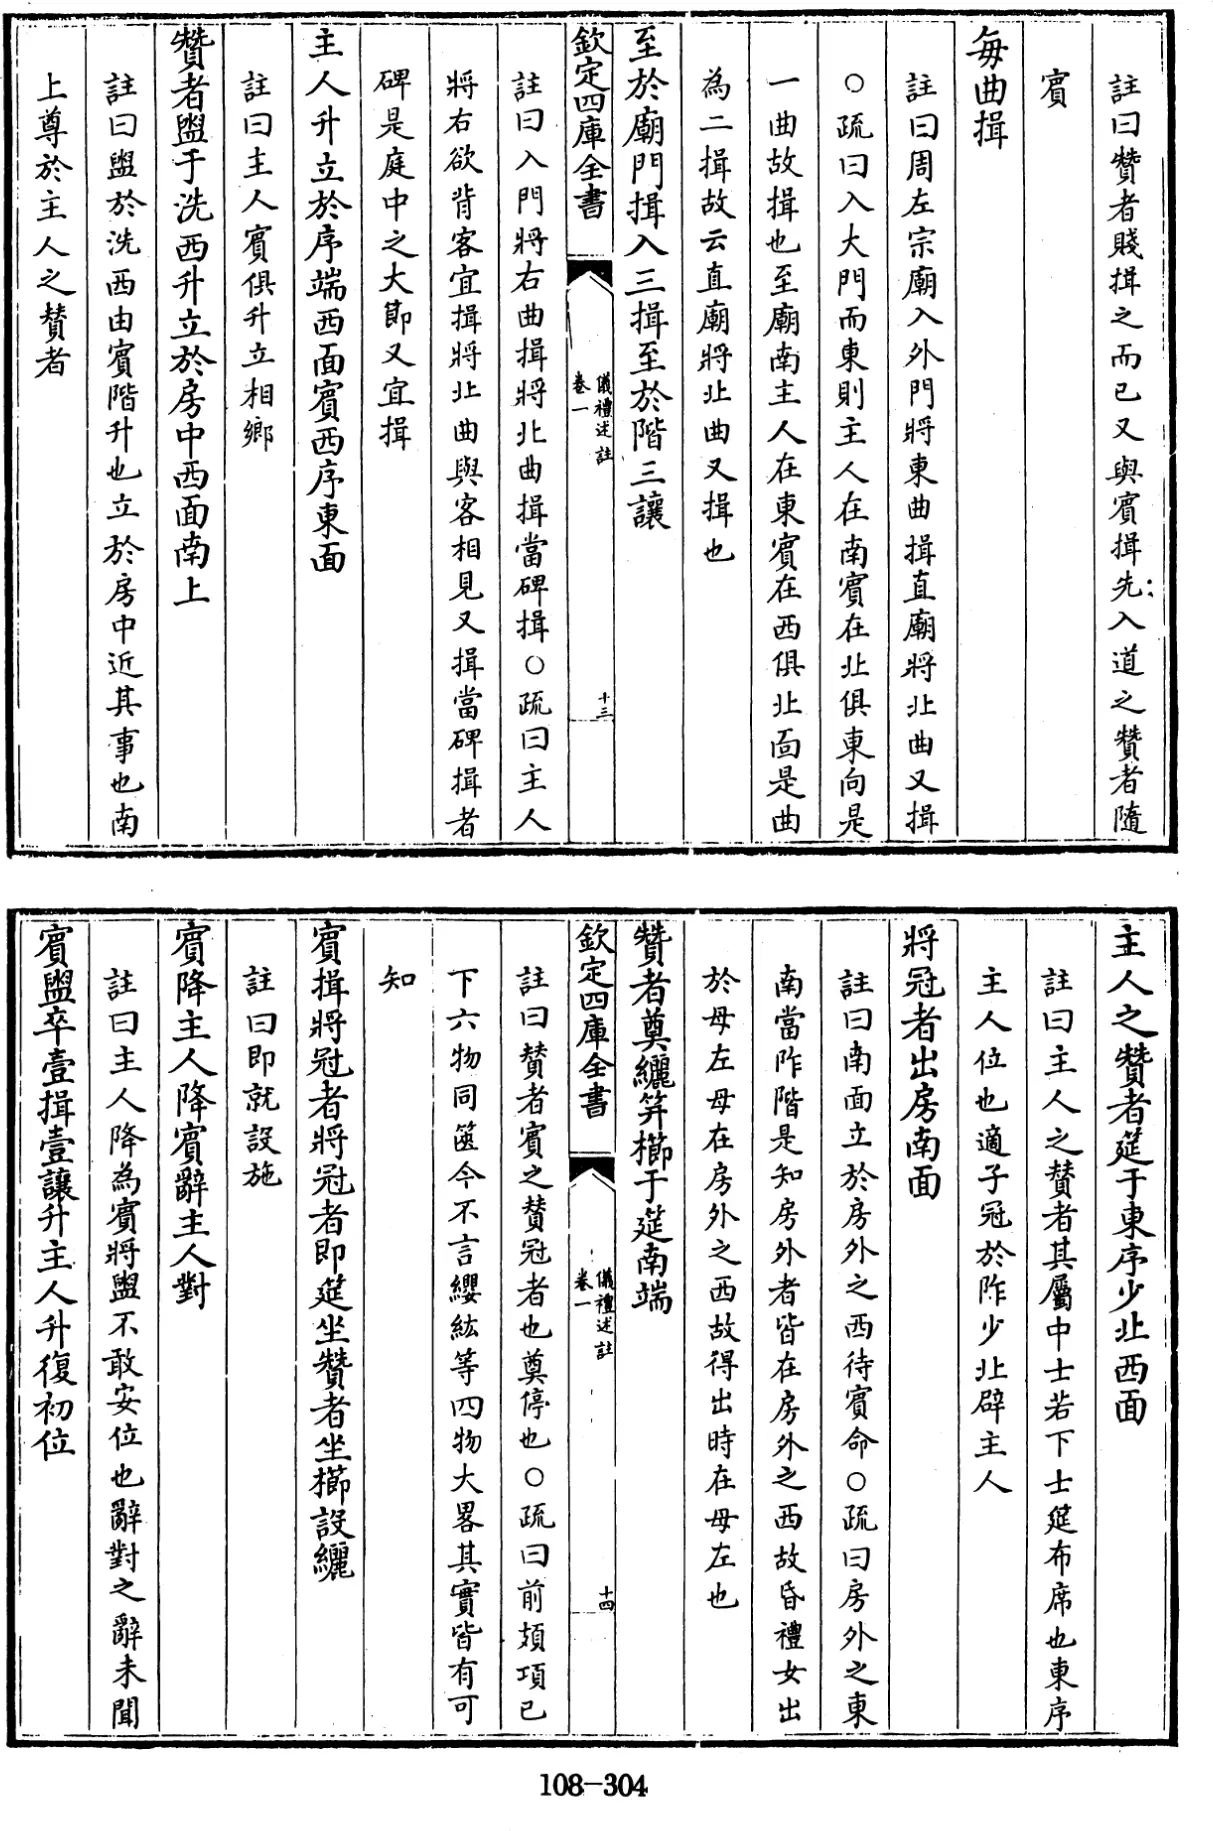 註曰贊者賤揖之而已又與賓揖先入道之贊者隨
賓
每曲揖
註曰周左宗廟入外門將東曲揖直廟將北曲又揖
○疏曰入大門而東則主人在南賓在北俱東向是
一曲故揖也至廟南主人在東賓在西俱北面是曲
為二揖故云直廟將北曲又揖也
至於廟門揖入三揖至於階三讓
欽定四庫全書
儀禮述註
卷一
十三
註曰入門將右曲揖將北曲揖當碑揖○疏曰主人
將右欲背客宜揖將北曲與客相見又揖當碑揖者
碑是庭中之大節又宜揖
主人升立於序端西面賓西序東面
註曰主人賓俱升立相鄉
贊者盥于洗西升立於房中西面南上
註曰盥於洗西由賓階升也立於房中近其事也南
上尊於主人之贊者
主人之贊者筵于東序少北西面
註曰主人之贊者其屬中士若下士筵布席也東序
主人位也適子冠於阼少北辟主人
將冠者出房南面
註曰南面立於房外之西待賓命○疏曰房外之東
南當阼階是知房外者皆在房外之西故昏禮女出
於母左母在房外之西故得出時在母左也
贊者奠纚笄櫛于筵南端
欽定四庫全書
儀禮述註
卷一
十四
註曰贊者賓之贊冠者也奠停也○疏曰前頍項已
下六物同篋今不言纓紘等四物大畧其實皆有可
知
賓揖將冠者將冠者即筵坐贊者坐櫛設纚
註曰即就設施
賓降主人降賓辭主人對
註曰主人降為賓將盥不敢安位也辭對之辭未聞
賓盥卒壹揖壹讓升主人升復初位
108-304